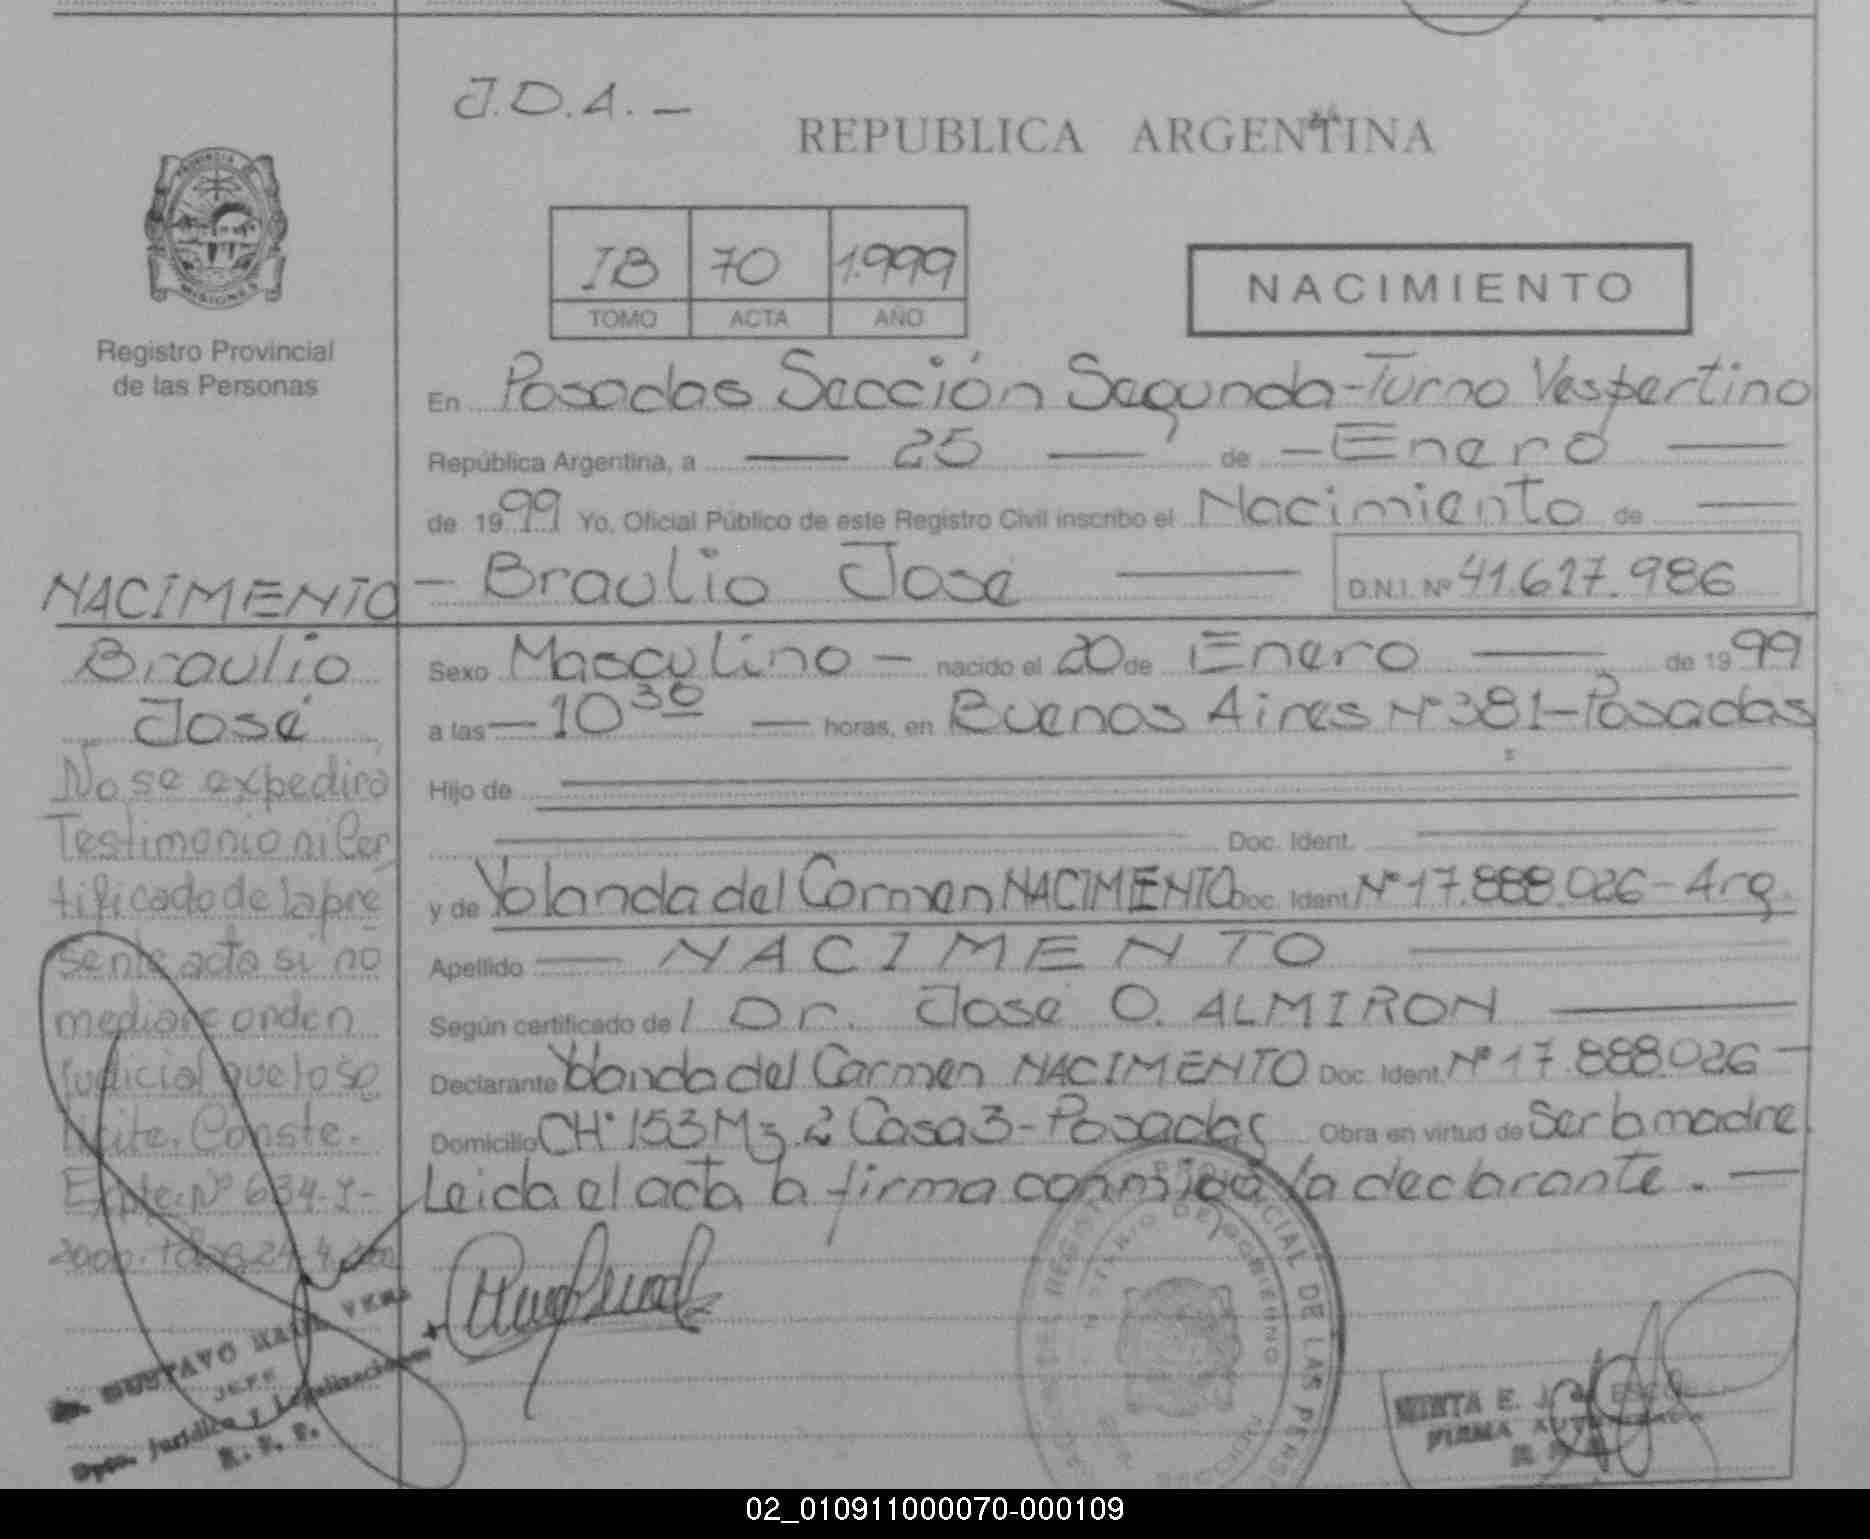 J.D.A. —
REPUBLICA ARGENTINA
PROVINCIA
MISIONES
Registro Provincial
de las Personas
IB 70 1.999
TOMO ACTA AÑO
NACIMIENTO
En Posadas Sección Segunda - Turno Vespertino
República Argentina, a — 25 — de — Enero —
de 1999 Yo, Oficial Público de este Registro Civil inscribo el Nacimiento de —
— Braulio José — D.N.I. Nº 41.617.986
Sexo Masculino — nacido el 20 de Enero — de 1999
a las — 10 30 — horas, en Buenos Aires Nº 381 - Posadas
Hijo de
Doc. Ident.
y de Yolanda del Carmen NACIMENTO Doc. Ident. Nº 17.888.026 - Arg.
Apellido — NACIMENTO —
Según certificado del Dr. José O. ALMIRON —
Declarante Yolanda del Carmen NACIMENTO Doc. Ident. Nº 17.888.026 —
Domicilio CHº 153 Mz. 2 Casa 3 - Posadas Obra en virtud de Ser la madre.
Leida el acta la firma conmigo la declarante. —
NACIMENTO
Braulio
José
No se expedirá
Testimonio ni Cer
tificado de la pre
sente acta si no
mediare orden
judicial que lo so
licite. Conste.
Expte. Nº 634-Y-
2000.
GUSTAVO VERA
JEFE
Dpto. Jurídico y Legalizaciones
R. P. P.
REGISTRO PROVINCIAL DE LAS PERSONAS
MINISTERIO DE GOBIERNO
MIRTA E. J.
FIRMA
02_010911000070-000109